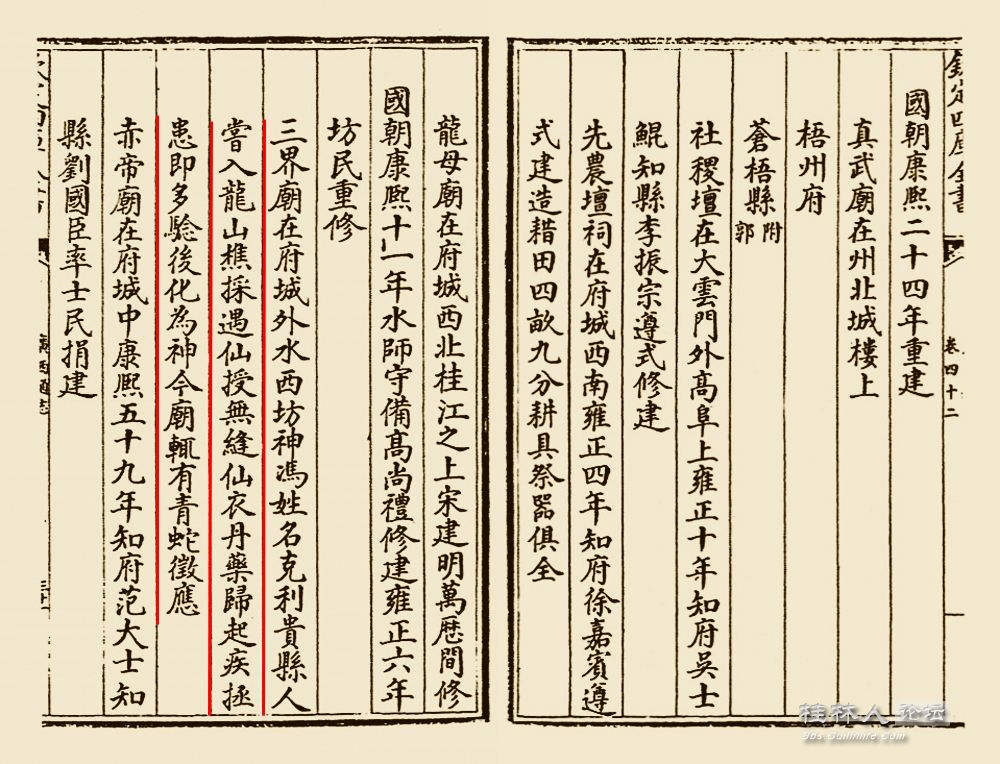 欽定四庫全書
卷四十二
國朝康熙二十四年重建
真武廟在州北城樓上
梧州府
蒼梧縣附郭
社稷壇在大雲門外高阜上雍正十年知府吳士
鯤知縣李振宗遵式修建
先農壇祠在府城西南雍正四年知府徐嘉賓遵
式建造耤田四畝九分耕具祭器俱全
龍母廟在府城西北桂江之上宋建明萬厯間修
國朝康熙十一年水師守備高尚禮修建雍正六年
坊民重修
三界廟在府城外水西坊神馮姓名克利貴縣人
嘗入龍山樵採遇仙授無縫仙衣丹藥歸起疾拯
患即多驗後化為神今廟輒有青蛇徵應
赤帝廟在府城中康熙五十九年知府范大士知
縣劉國臣率士民捐建
廣西通志
桂林人论坛
bbs.Guilinlife.com